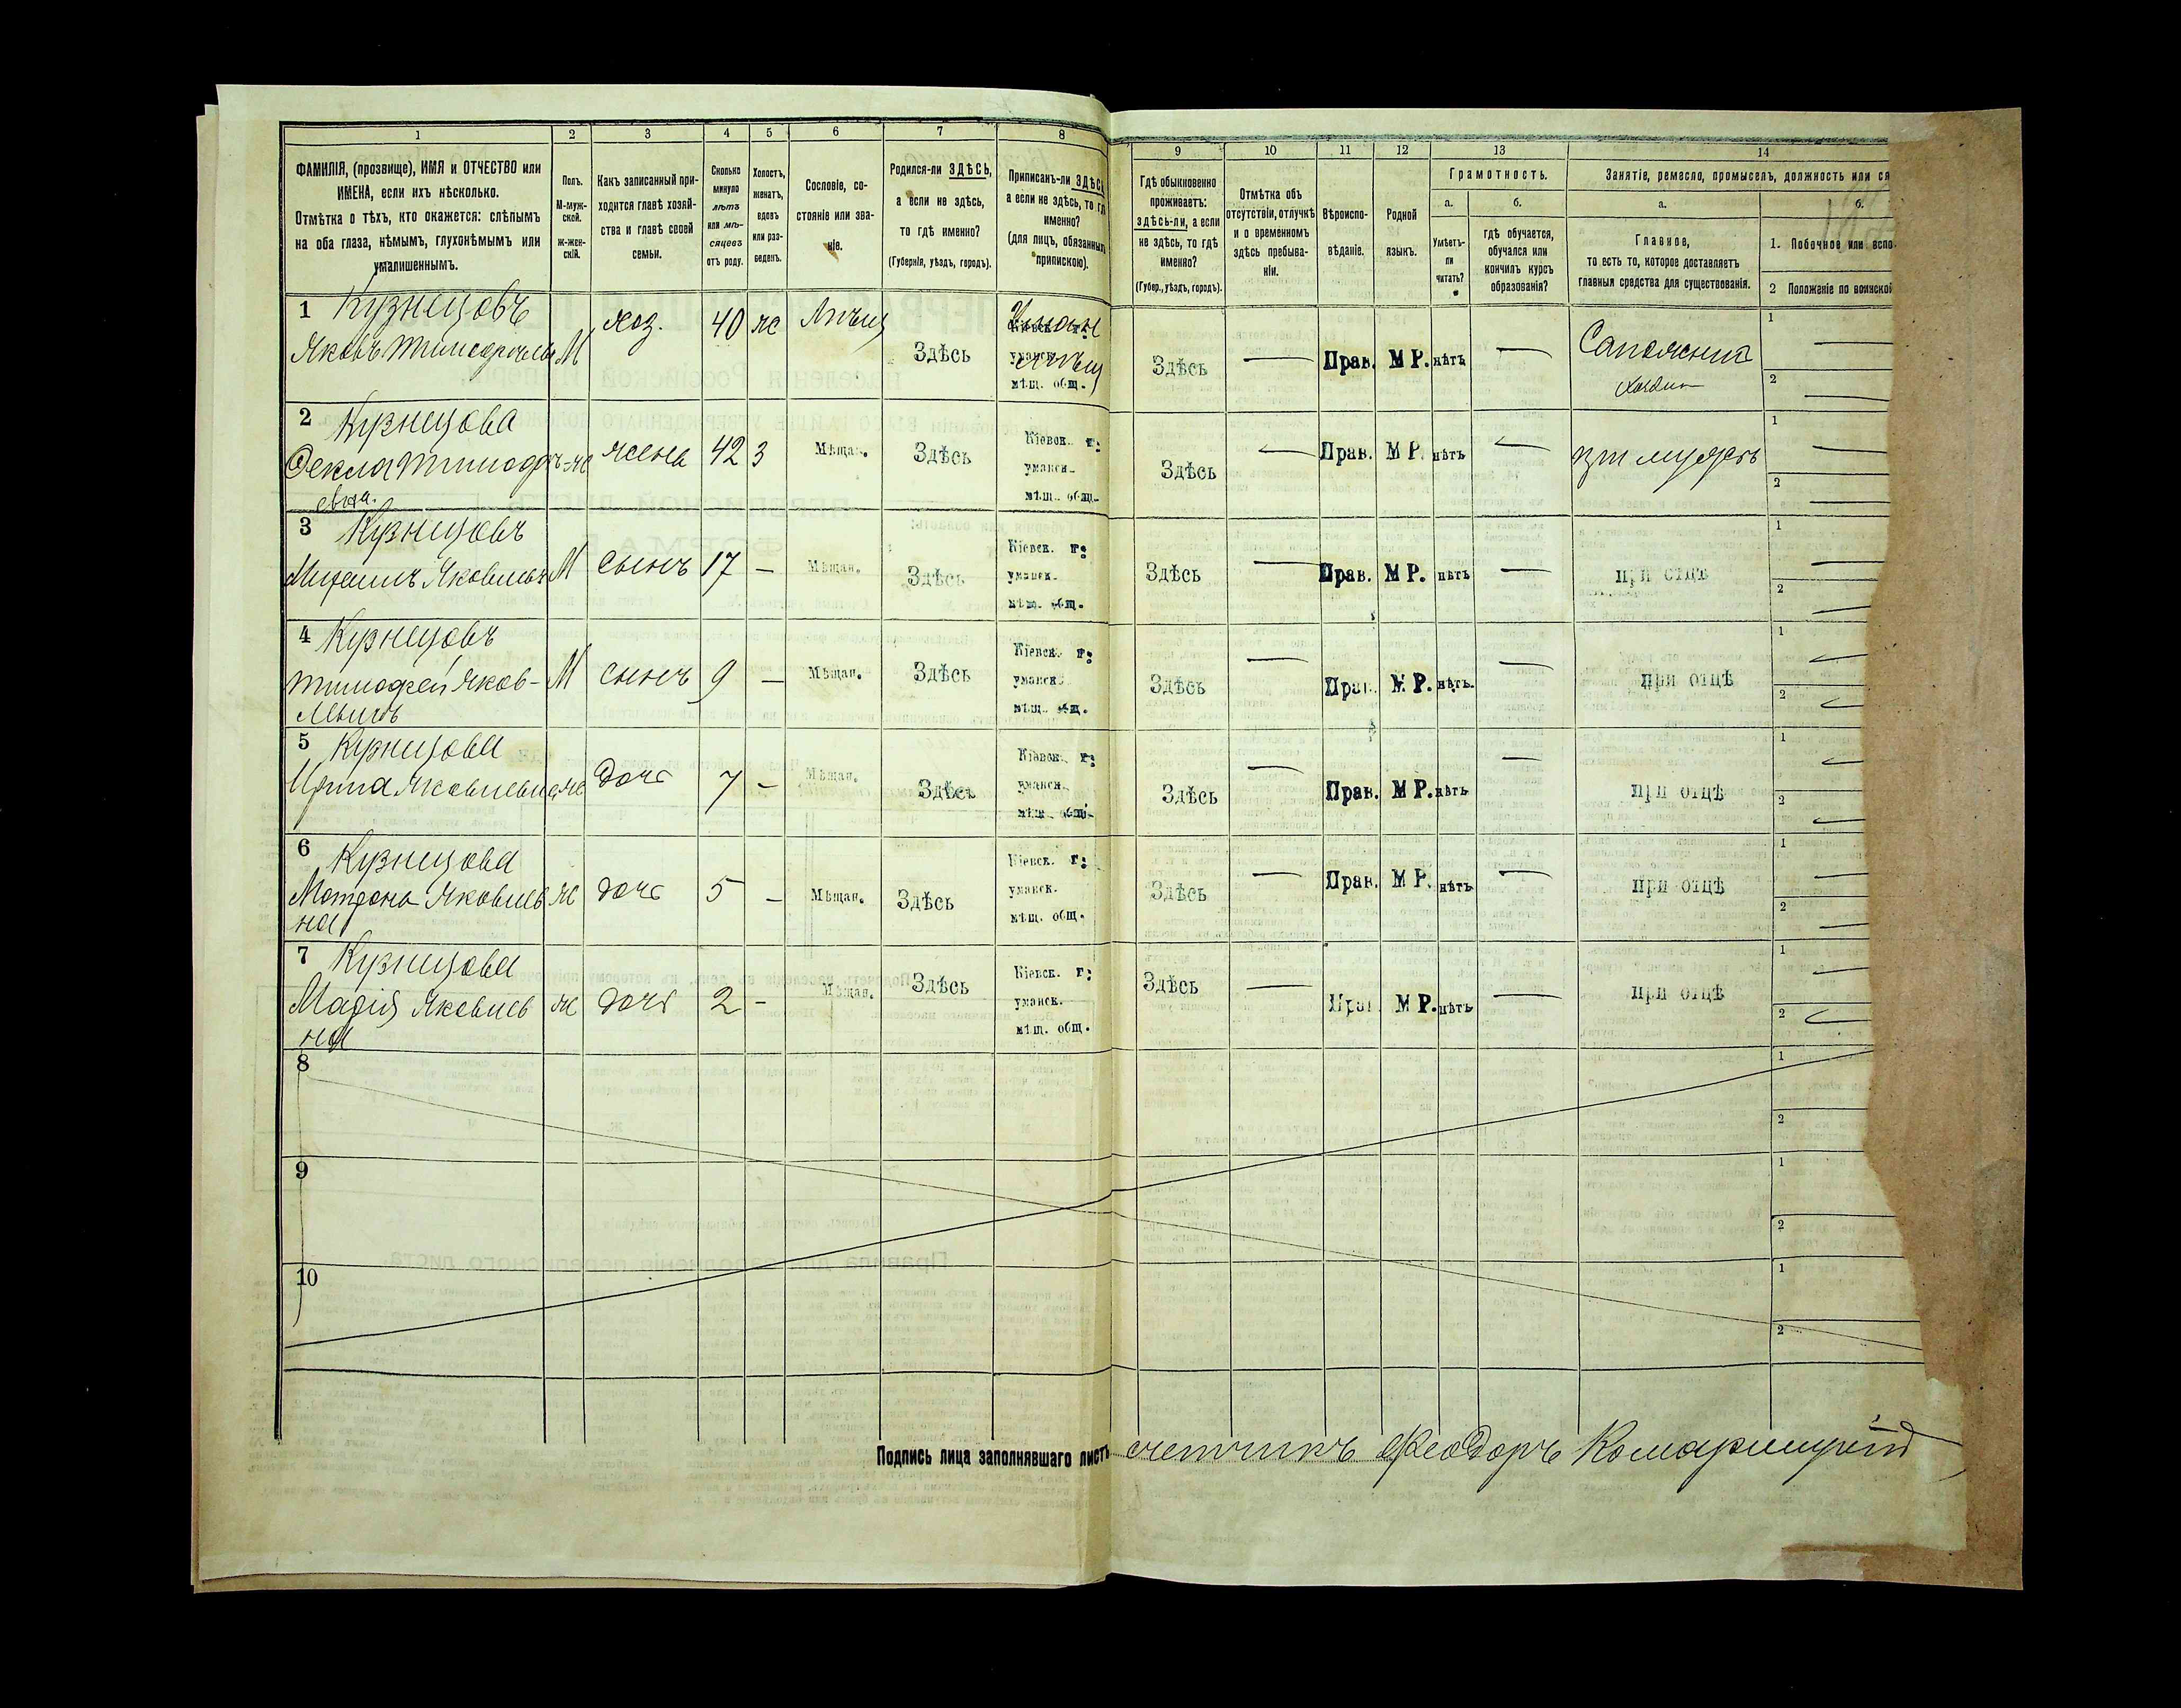 1
2
3
4
5
6
7
8
ФАМИЛІЯ, (прозвище), ИМЯ и ОТЧЕСТВО или
ИМЕНА, если ихъ нѣсколько.
Отмѣтка о тѣхъ, кто окажется: слѣпымъ
на оба глаза, нѣмымъ, глухонѣмымъ или
умалишеннымъ.
Полъ.
М-муж-
ской.
ж-жен-
скій.
Какъ записанный при-
ходится главѣ хозяй-
ства и главѣ своей
семьи.
Сколько
минуло
лѣтъ
или мѣ-
сяцевъ
отъ роду.
Холостъ,
женатъ,
вдовъ
или раз-
веденъ.
Сословіе, со-
стояніе или зва-
ніе.
Родился-ли ЗДѢСЬ,
а если не здѣсь,
то гдѣ именно?
(Губернія, уѣздъ, городъ).
Приписанъ-ли ЗДѢСЬ
а если не здѣсь, то гдѣ
именно?
(для лицъ, обязанныхъ
припискою).
9
10
11
12
13
14
Гдѣ обыкновенно
проживаетъ:
здѣсь-ли, а если
не здѣсь, то гдѣ
именно?
(Губер., уѣздъ, городъ).
Отмѣтка объ
отсутствіи, отлучкѣ
и о временномъ
здѣсь пребыва-
ніи.
Вѣроиспо-
вѣданіе.
Родной
языкъ.
Грамотность.
а.
Умѣетъ-
ли
читать?
б.
гдѣ обучается,
обучался или
кончилъ курсъ
образованія?
Занятіе, ремесло, промыселъ, должность или
а.
Главное,
то есть то, которое доставляетъ
главныя средства для существованія.
б.
1. Побочное или
2 Положеніе по воинской
1 Кузнецовъ
Яковъ М хоз. 40 ж Здѣсь
мѣщ. общ.
Здѣсь — Прав. М Р. нѣтъ —
1 —
2 —
2 Кузнецова
Фекла ж жена 42 З Мѣщан. Здѣсь
евна.
Кіевск. г:
уманск.
мѣщ. общ.
Здѣсь — Прав. М Р. нѣтъ — при мужѣ
1 —
2 —
3 Кузнецовъ
М сынъ 17 — Мѣщан. Здѣсь
Кіевск. г:
уманск.
мѣщ. общ.
Здѣсь — Прав. М Р. нѣтъ — при отцѣ
1 —
2 —
4 Кузнецовъ
Тимофей Яков- М сынъ 9 — Мѣщан. Здѣсь
левичъ
Кіевск. г:
уманск.
мѣщ. общ.
Здѣсь — Прав. М Р. нѣтъ. — при отцѣ
1 —
2 —
5 Кузнецова
Яковлевна ж дочь 7 — Мѣщан. Здѣсь
Кіевск. г:
уманск.
мѣщ. общ.
Здѣсь — Прав. М Р. нѣтъ — при отцѣ
1 —
2 —
6 Кузнецова
Матрена Яковлев ж дочь 5 — Мѣщан. Здѣсь
на
Кіевск. г:
уманск.
мѣщ. общ.
Здѣсь — Прав. М Р. нѣтъ — при отцѣ
1 —
2 —
7 Кузнецова
Марія Яковлев ж дочь 2 — Мѣщан. Здѣсь
на
Кіевск. г:
уманск.
мѣщ. общ.
Здѣсь — Прав. М Р. нѣтъ — при отцѣ
1 —
2 —
8
1
2
9
1
2
10
1
2
Подпись лица заполнявшаго листъ счетчикъ Феодоръ